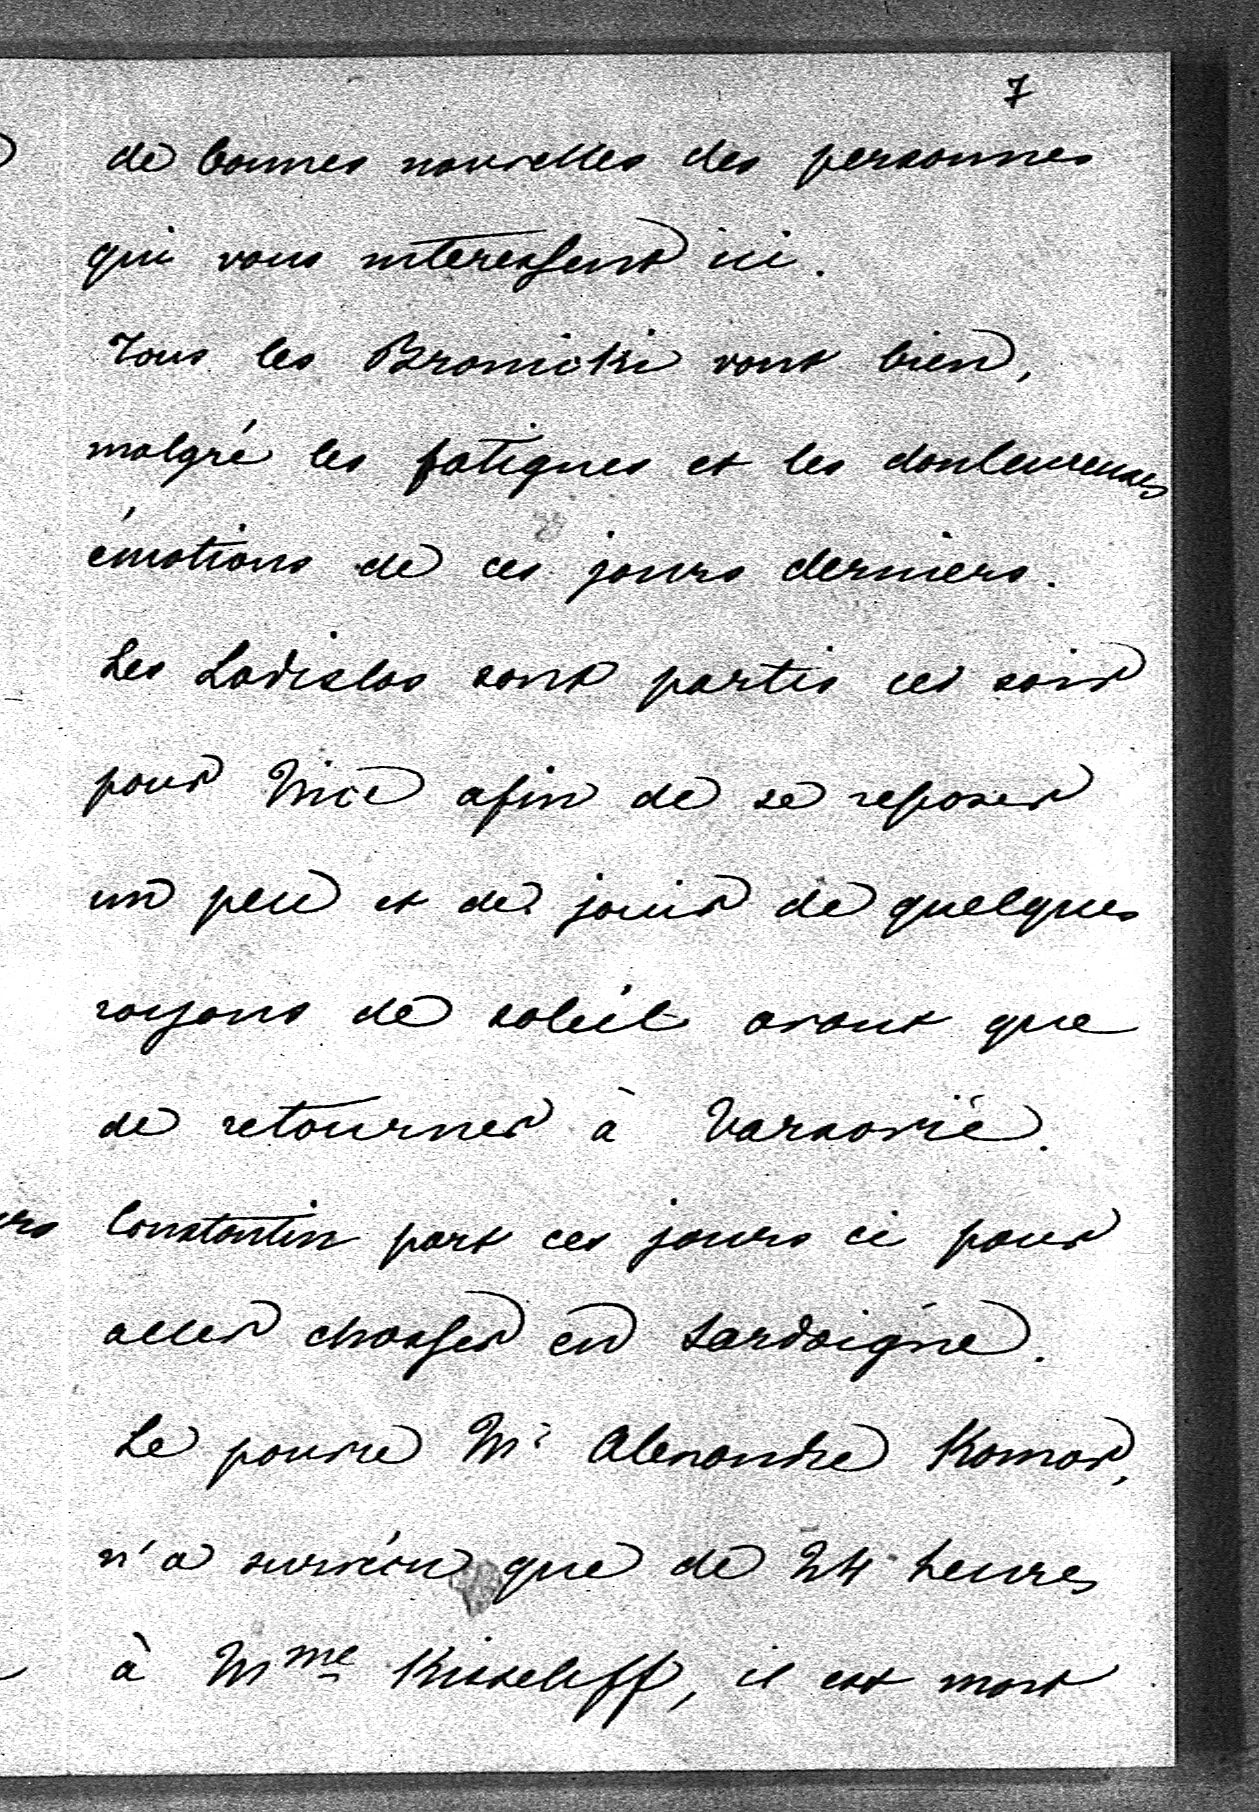 7
de bonnes nouvelles des personnes
qui vous interessent ici.
Tous les Branicki vont bien,
malgré les fatigues et les douleureuses
émotions de ces jours derniers.
Les Ladislas sont partis ce soir
pour Nice afin de se reposer
un peu et de jouir de quelques
rayons de soleil avant que
de retourner à Varsovie.
Constantin part ces jours ci pour
aller chasser en Sardaigne.
Le pauvre Mr Alexandre Komar,
n'a survécu que de 24 heures
à Mme Kisseleff, il est mort